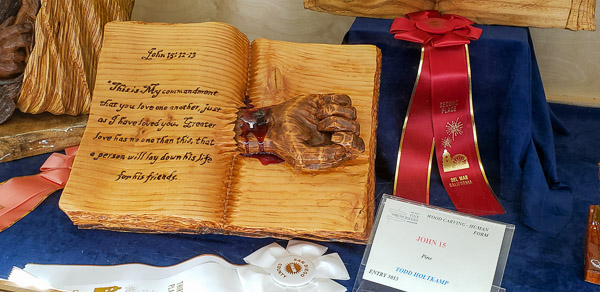 John 15:12-13
"This is My commandment
that you love one another, just
as I have loved you. Greater
love has no one than this, that
a person will lay down his life
for his friends.
SECOND
PLACE
DEL MAR
CALIFORNIA
WOOD CARVING - HUMAN
FORM
JOHN 15
Pine
TODD HOLTKAMP
ENTRY 3853